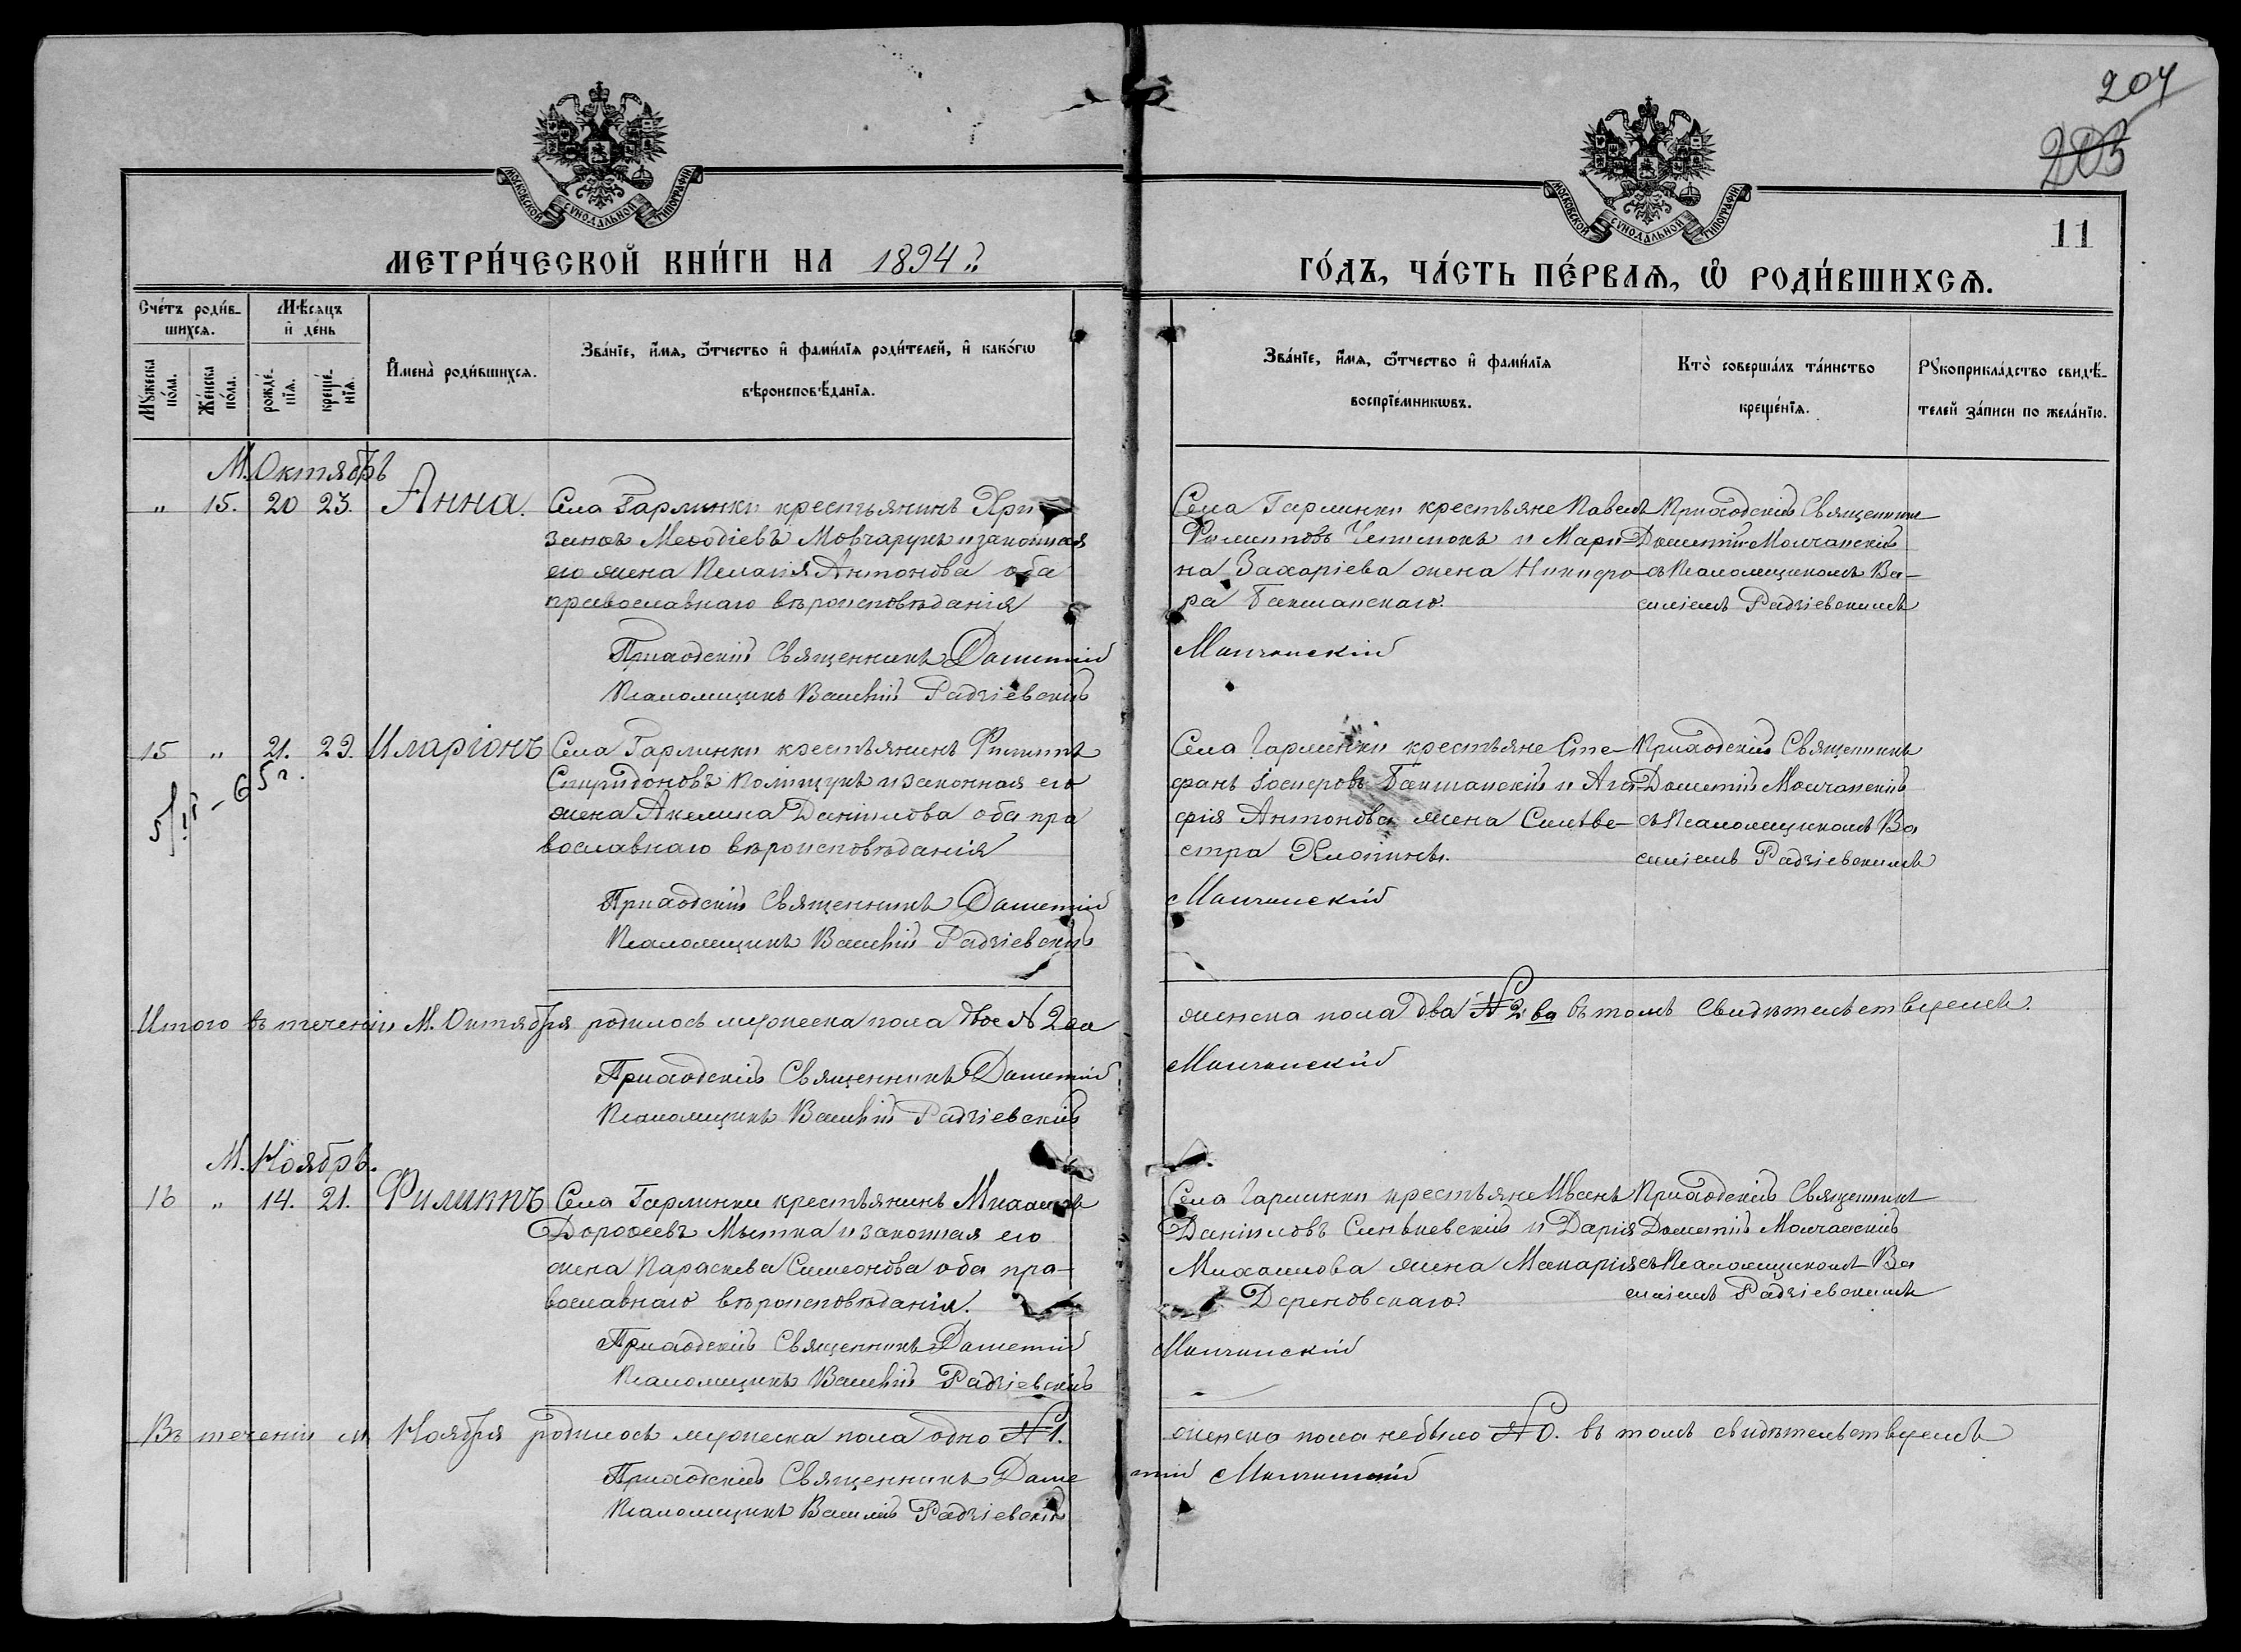 207
203
11
МОСКОВСКОЙ СѴНОДАЛЬНОЙ ТИПОГРАФІИ
МОСКОВСКОЙ СѴНОДАЛЬНОЙ ТИПОГРАФІИ
МЕТРИ́ЧЕСКОЙ КНИ́ГИ НА 1894 г.
ГО́ДЪ, ЧА́СТЬ ПЕ́РВАѦ, Ѡ РОДИ́ВШИХСѦ.
Сче́тъ роди́в-
шихсѧ.
Мѣ́сѧцъ
и де́нь
Мꙋ́жеска по́ла.
Же́нска по́ла.
рожде́-нїѧ.
креще́-нїѧ.
Имена̀ роди́вшихсѧ.
Зва́нїе, и́мѧ, ѻ҆́тчество и фами́лїѧ роди́телей, и како́гѡ
вѣроисповѣ́данїѧ.
Зва́нїе, и́мѧ, ѻ҆́тчество и фами́лїѧ
воспрїе́мникѡвъ.
Кто̀ соверша́лъ та́инство
креще́нїѧ.
Рꙋкоприкла́дство свидѣ́-
телей за́писи по жела́нїю.
М. Октябрь
" 15. 20 23. Анна.
Села Гарлинки крестьянинъ Хри-
занѳъ Меѳодіевъ Мовчарукъ и законная
его жена Пелагія Антонова оба
православнаго вѣроисповѣданія
Приходскій Священникъ Дометій
Псаломщикъ Василій Радзіевскій
Села Гарлинки крестьяне Павелъ
Филипповъ и Мари-
на Захаріева жена Никифо-
ра Бакшанскаго.
Молчанскій
Приходскій Священникъ
Дометій Молчанскій
съ Псаломщикомъ Ва-
силіемъ Радзіевскимъ
15 " 21. 23. Иларіонъ
5/II - 65 г.
Села Гарлинки крестьянинъ Филиппъ
Спиридоновъ Полищукъ и законная его
жена Акилина Даніилова оба пра
вославнаго вѣроисповѣданія
Приходскій Священникъ Дометій
Псаломщикъ Василій Радзіевскій
Села Гарлинки крестьяне Сте-
фанъ Іосифовъ Бакшанскій и Ага-
фія Антонова жена Силъве-
стра
Молчанскій
Приходскій Священникъ
Дометій Молчанскій
съ Псаломщикомъ Ва
силіемъ Радзіевскимъ
Итого въ теченіи М. Октября родилось мужеска пола двое № 2 ва
женска пола два № 2 ва въ томъ свидѣтельствуемъ.
Приходскій Священникъ Дометій
Молчанскій
Псаломщикъ Василій Радзіевскій
М. Ноябрь.
16 " 14. 21. Филиппъ
Села Гарлинки крестьянинъ Михаилъ
Дороѳеевъ Мытка и законная его
жена Параскева Симеонова оба пра-
вославнаго вѣроисповѣданія.
Приходскій Священникъ Дометій
Псаломщикъ Василій Радзіевскій
Села Гарлинки крестьяне Иванъ
Даніиловъ Синькевскій и Дарія
Михаилова жена Макарія
Дереновскаго
Молчанскій
Приходскій Священникъ
Дометій Молчанскій
съ Псаломщикомъ Ва
силіемъ Радзіевскимъ
Въ теченіи м. Ноября родилось мужеска пола одно № 1.
женска пола небыло № 0. въ томъ свидѣтельствуемъ
Приходскій Священникъ Доме
тій Молчанскій
Псаломщикъ Василій Радзіевскій